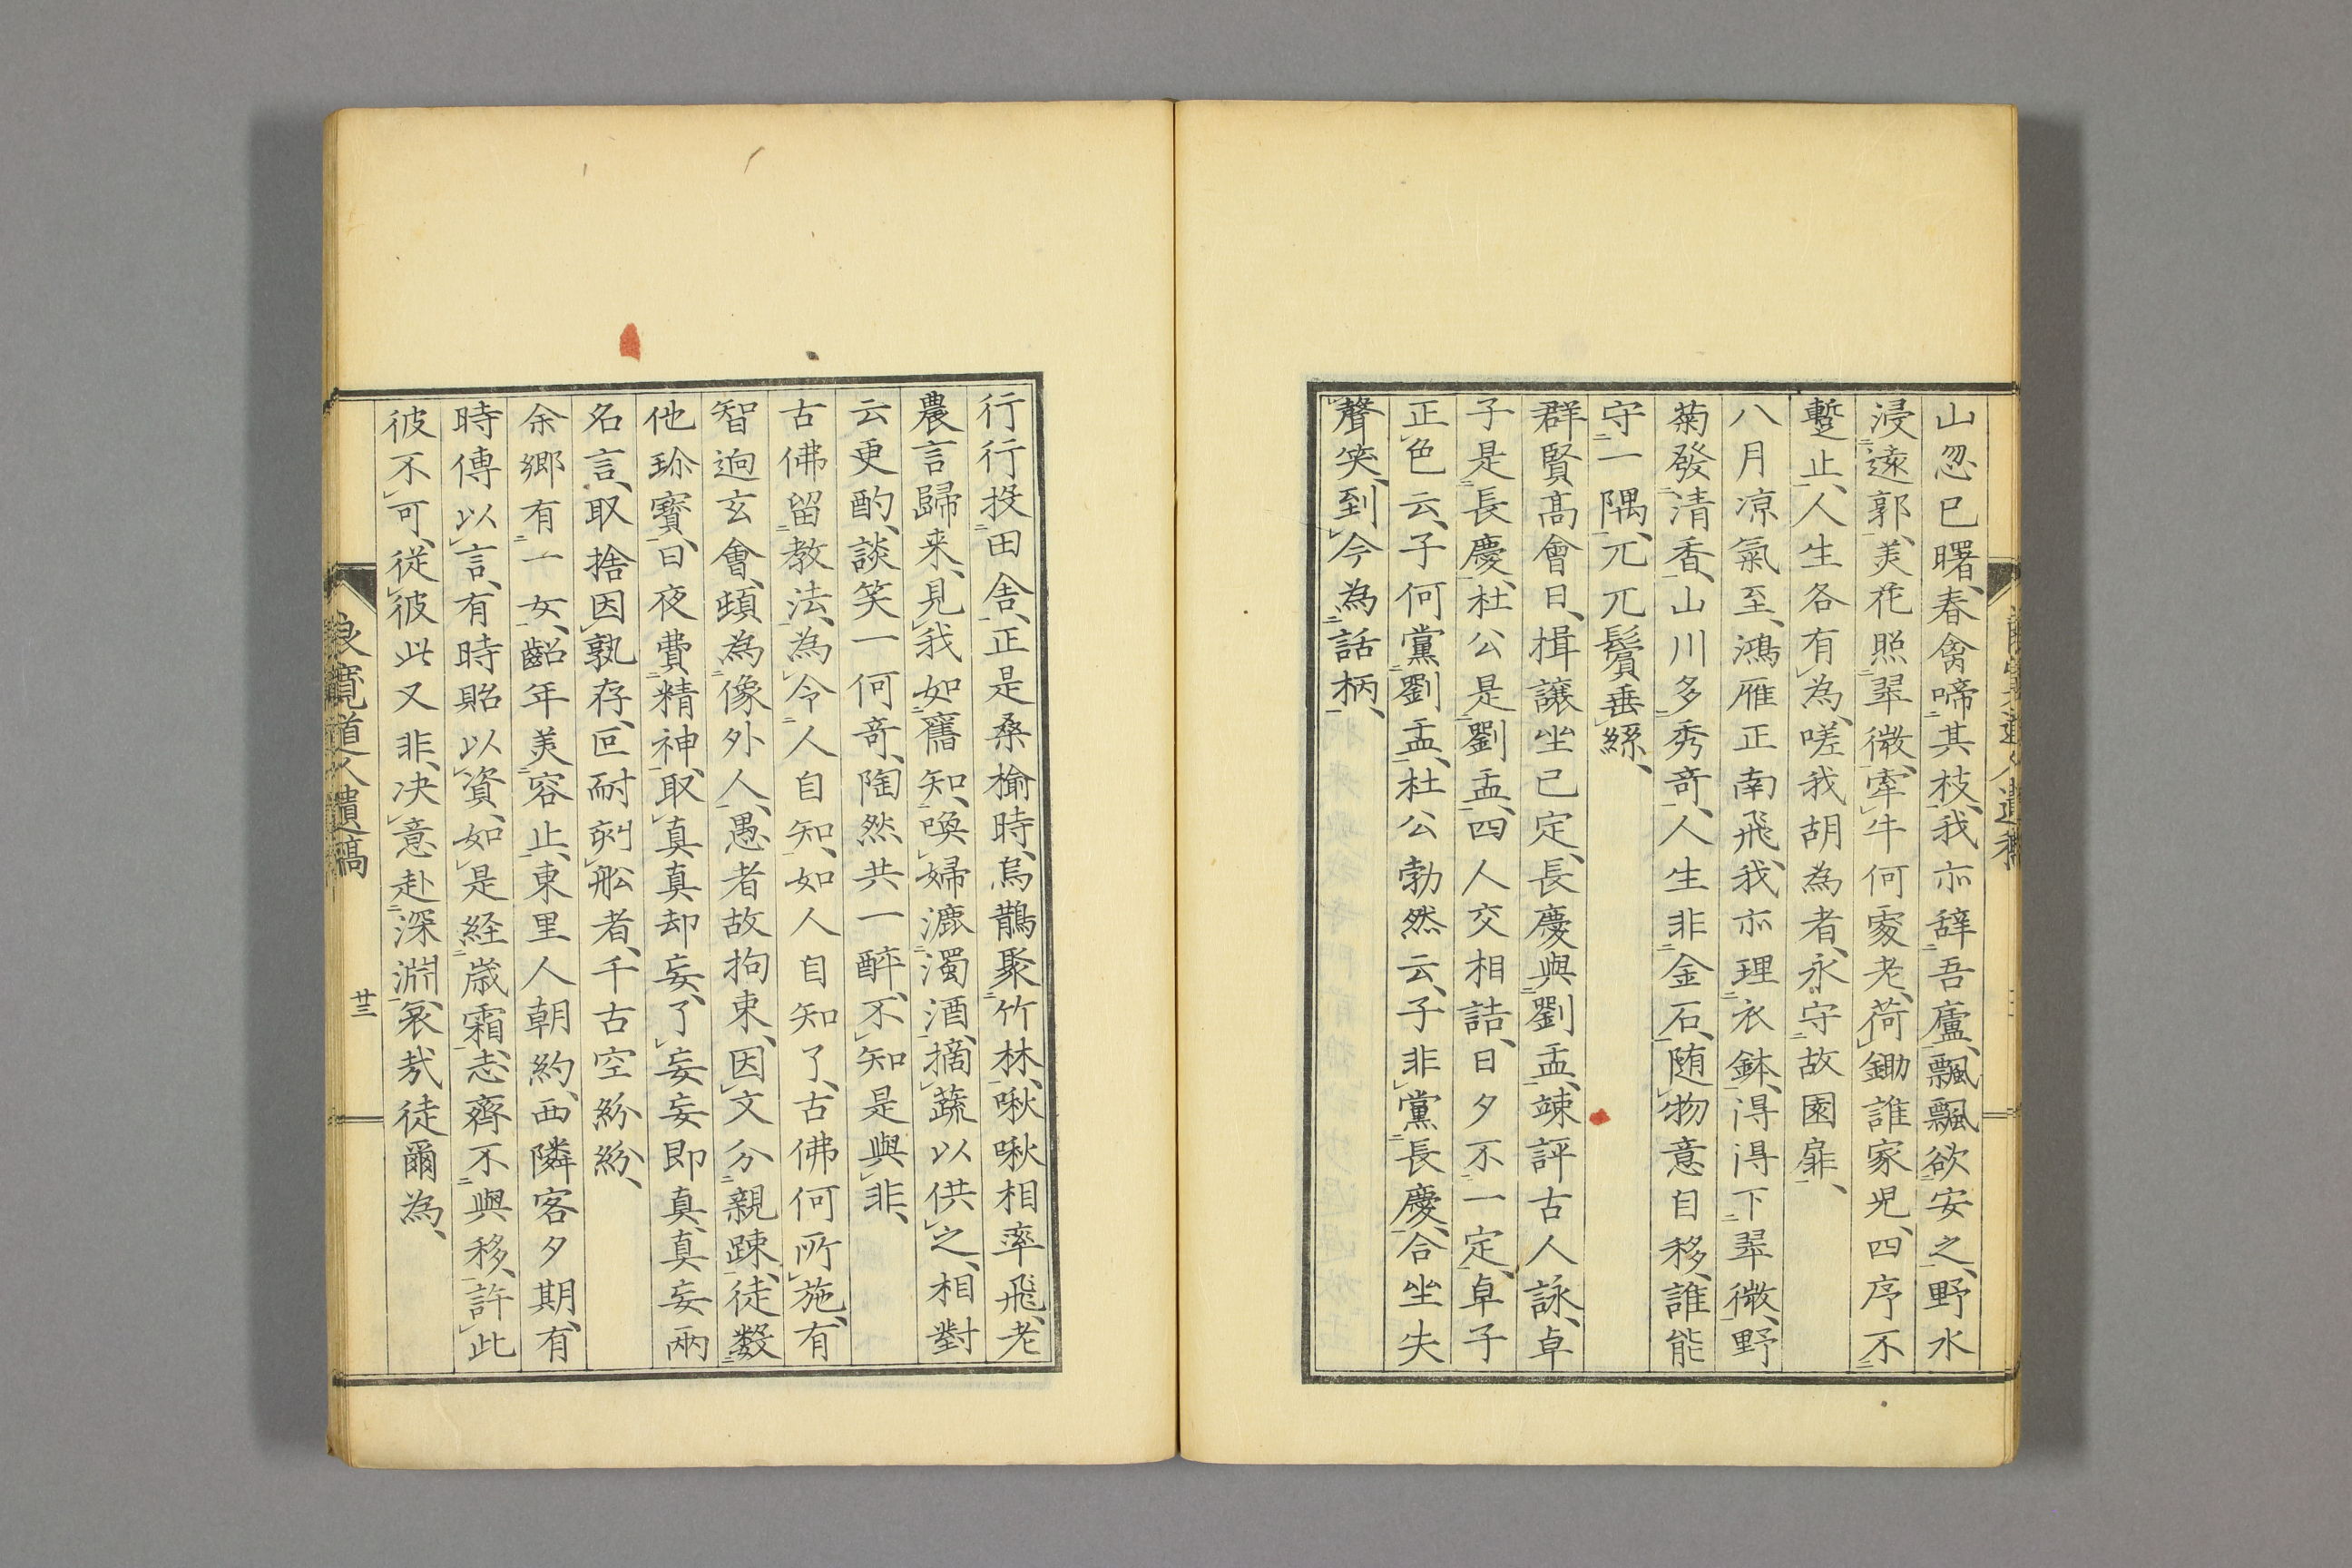 山忽已曙、春禽啼其枝、我亦辞吾廬、飄飄欲安之、野水
浸遠郭、美花照翠微、牽牛何處老、荷鋤誰家兒、四序不
蹔止、人生各有為、嗟我胡為者、永守故園扉、
八月凉氣至、鴻雁正南飛、我亦理衣鉢、得得下翠微、野
菊發清香、山川多秀奇、人生非金石、随物意自移、誰能
守一隅、兀兀鬢垂絲、
群賢高會日、揖譲坐已定、長慶與劉盂、竦評古人詠、卓
子是長慶、杜公是劉盂、四人交相詰、日夕不一定、卓子
正色云、子何黨劉盂、杜公勃然云、子非黨長慶、合坐失
聲笑、到今為話柄、
行行投田舎、正是桑榆時、烏鵲聚竹林、啾啾相率飛、老
農言歸来、見我如舊知、喚婦漉濁酒、摘蔬以供之、相對
云更酌、談笑一何奇、陶然共一醉、不知是與非、
古佛留教法、為令人自知、如人自知了、古佛何所施、有
智逈玄會、頓為像外人、愚者故拘束、因文分親踈、徒数
他珎寳、日夜費精神、取真真却妄、了妄妄即真、真妄兩
名言、取捨因孰存、叵耐刻舩者、千古空紛紛、
余郷有一女、齠年美容止、東里人朝約、西隣客夕期、有
時傳以言、有時貽以資、如是経歳霜、志齊不與移、許此
彼不可、従彼此又非、决意赴深淵、哀哉徒爾為、
良寛道人遺稿
廿三